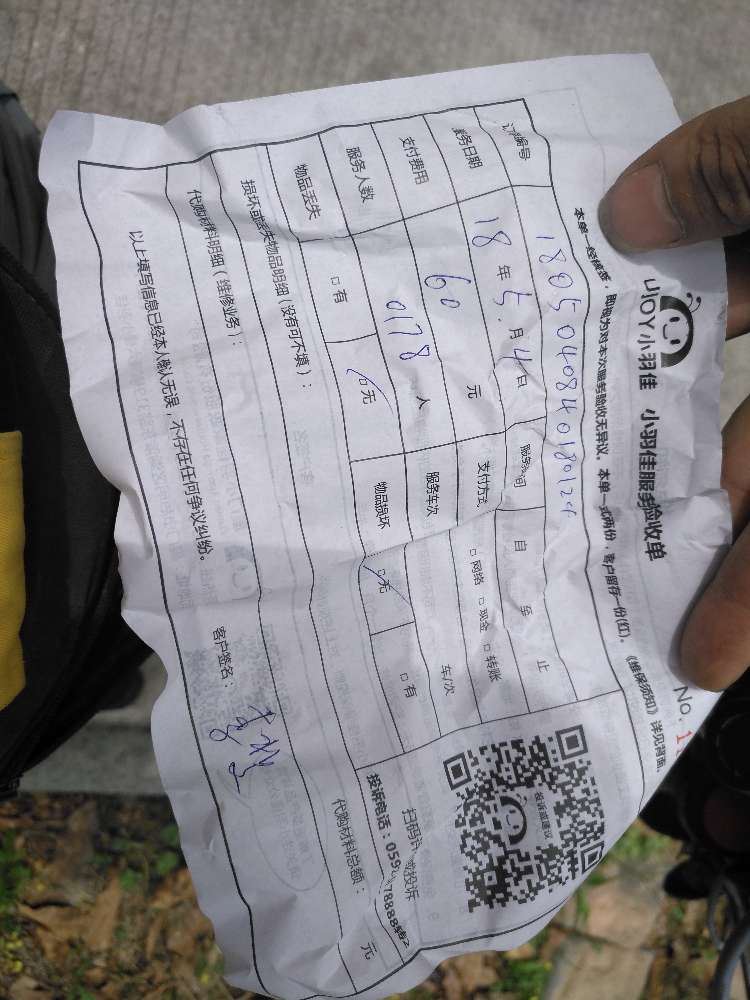 UJOY小羽佳 小羽佳服务验收单
No. 1
本单一经签署,即视为对本次服务验收无异议。本单一式两份,客户留存一份(红)。《维保须知》详见背面
订单编号 180504084018012
服务日期 18年5月4日 服务时间 自 至 止
支付费用 60 元 支付方式 □网络 □现金 □转账
服务人数 0178 人 服务车次 车/次
物品丢失 □有 □无 物品损坏 □无 □有
损坏或丢失物品明细(没有可不填):
代购材料明细(维修业务): 代购材料总额: 元
以上填写信息已经本人确认无误,不存在任何争议纠纷。
客户签名:
投诉或建议
扫码 投诉
投诉电话:059 78888转2